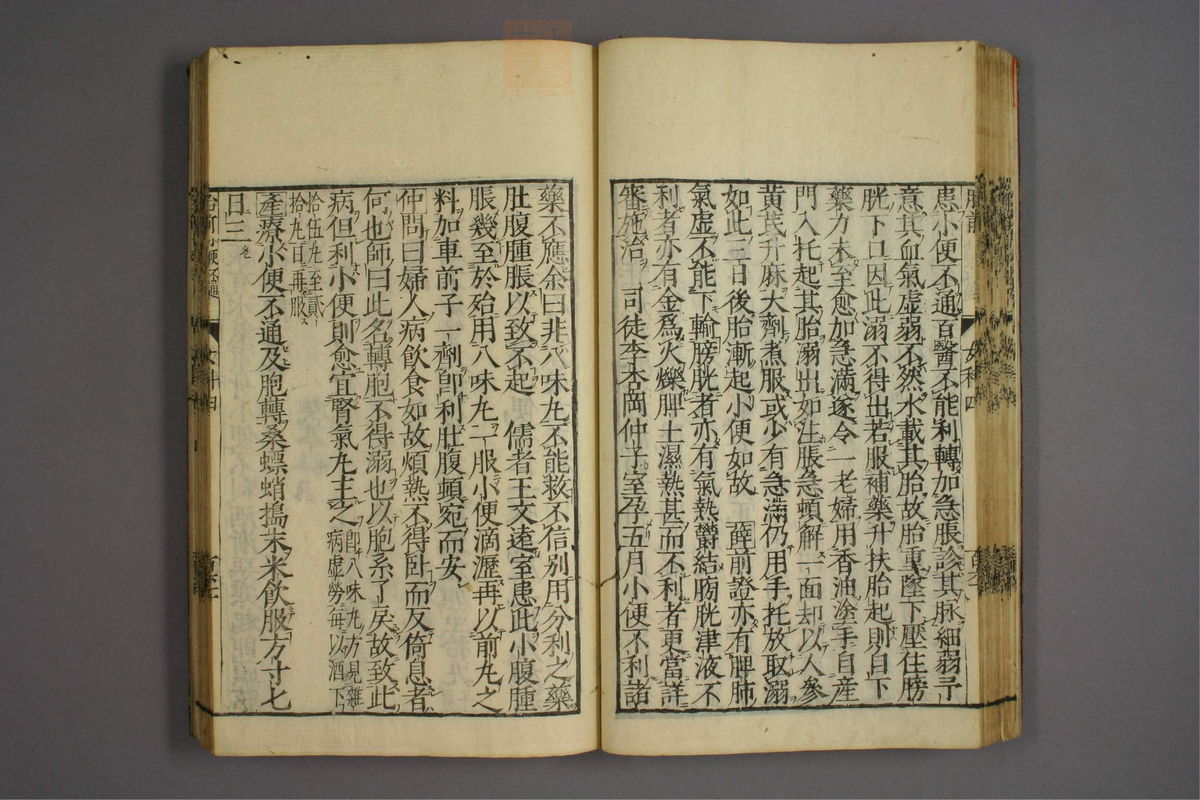 患小便不通百醫不能利轉加急脹診其脉細弱予
意其血氣虛弱不能水載其胎故胎重墜下壓住膀
胱下口因此溺不得出若服補藥升扶胎起則自下
藥力未至愈加急滿遂令一老婦用香油塗手自産
門入托起其胎溺出如注脹急頓解一面却以人參
黃芪升麻大劑煮服或少有急滿仍用手托放取溺
如此三日後胎漸起小便如故 薛前證亦有脾肺
氣虛不能下輸膀胱者亦有氣熱欝結膀胱津液不
利者亦有金爲火爍脾土濕熱甚而不利者更當詳
審施治 司徒李杏岡仲子室孕五月小便不利諸
藥不應余曰非八味丸不能救不信別用分利之藥
肚腹腫脹以致不起 儒者王文遠室患此小腹腫
脹幾至於殆用八味丸一服小便滴瀝再以前丸之
料加車前子一劑卽利肚腹頓宛而安
仲問曰婦人病飮食如故煩熱不得卧而反倚息者
何也師曰此名轉胞不得溺也以胞系了戾故致此
病但利小便則愈宜腎氣丸主之 卽八味丸方見雜
病虛勞毎以酒下
拾伍丸至貳
拾丸日再服
産療小便不通及胞轉桑螵蛸搗末米飮服方寸七
日三
胎前
女科四